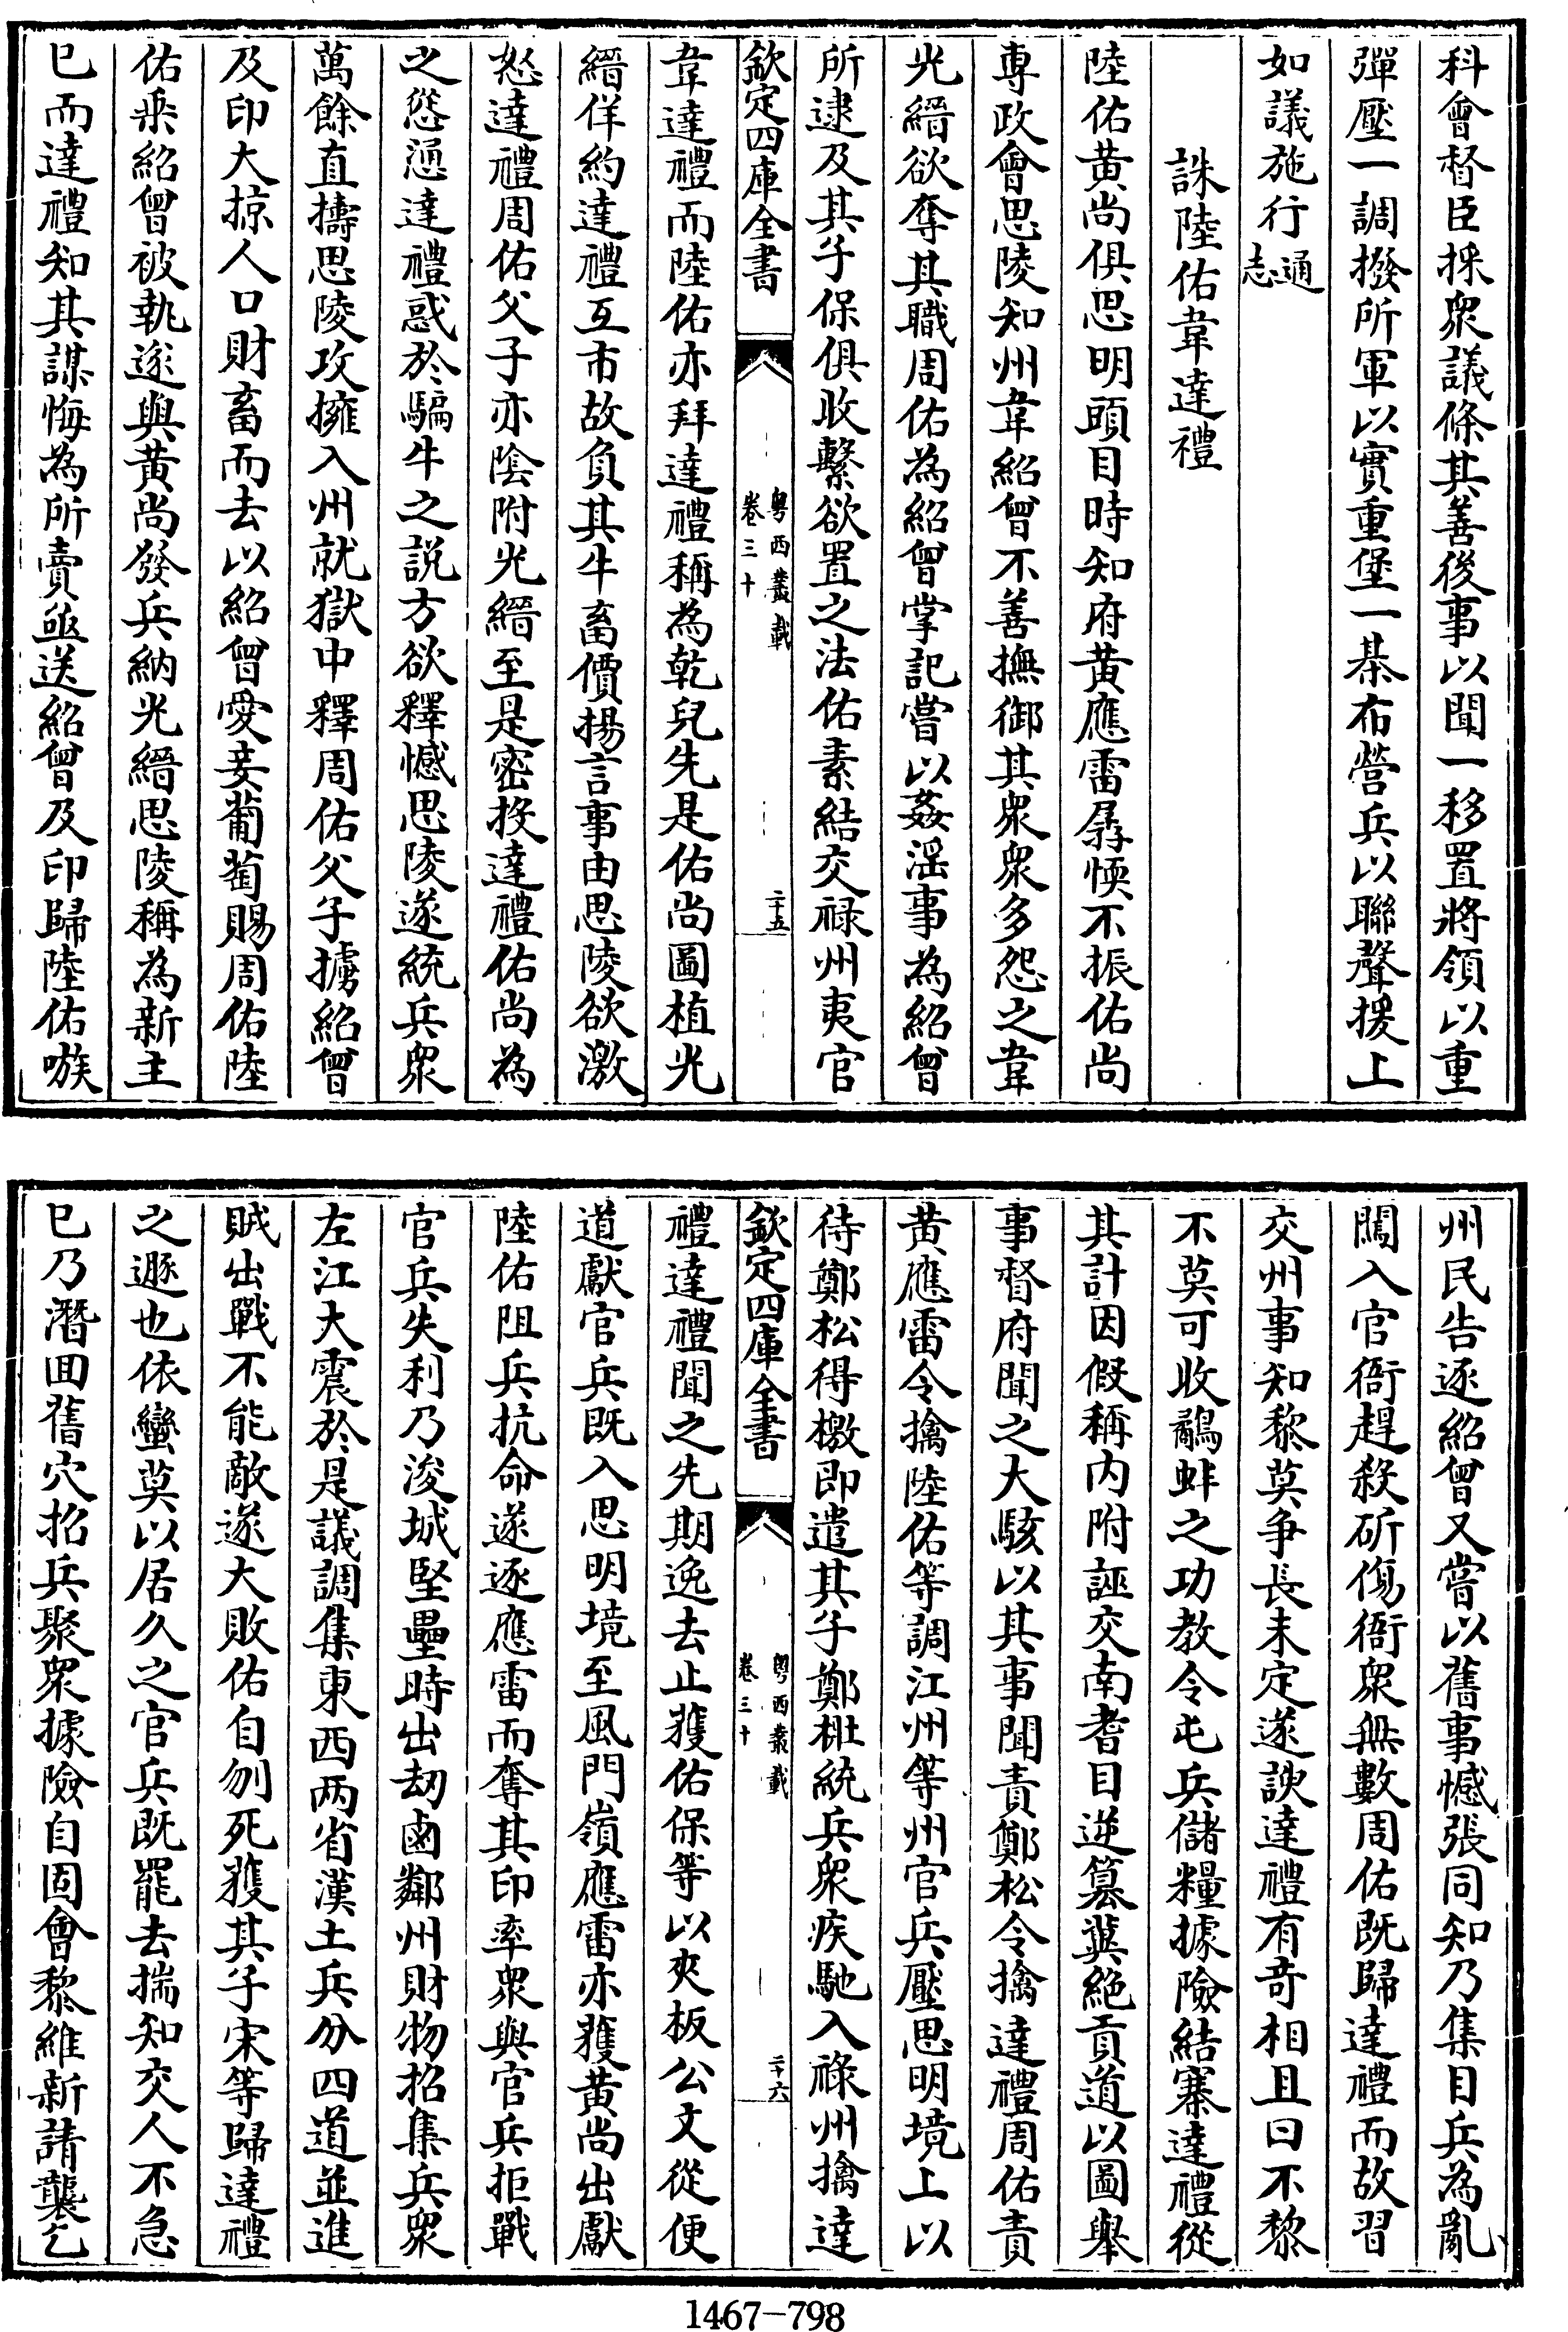 科會督臣採衆議條其善後事以聞一移置將領以重
彈壓一調撥所軍以實重堡一棊布營兵以聯聲援上
如議施行通志
誅陸佑韋達禮
陸佑黄尚俱思明頭目時知府黄應雷孱愞不振佑尚
專政會思陵知州韋紹曾不善撫御其衆衆多怨之韋
光縉欲奪其職周佑為紹曾掌記嘗以姦滛事為紹曾
所逮及其子保俱收繫欲置之法佑素結交禄州夷官
欽定四庫全書
粤西叢載
卷三十
二十五
韋達禮而陸佑亦拜達禮稱為乾兒先是佑尚圖植光
縉佯約達禮互市故負其牛畜價揚言事由思陵欲激
怒達禮周佑父子亦陰附光縉至是密投達禮佑尚為
之慫慂達禮惑於騙牛之説方欲釋憾思陵遂統兵衆
萬餘直擣思陵攻擁入州就獄中釋周佑父子擄紹曾
及印大掠人口財畜而去以紹曾愛妾葡萄賜周佑陸
佑乘紹曾被執遂與黄尚發兵納光縉思陵稱為新主
已而達禮知其謀悔為所賣亟送紹曾及印歸陸佑嗾
州民告逐紹曾又嘗以舊事憾張同知乃集目兵為亂
闖入官衙趕殺斫傷衙衆無數周佑既歸達禮而故習
交州事知黎莫争長未定遂諛達禮有奇相且曰不黎
不莫可收鷸蚌之功教令屯兵儲糧據險結寨達禮從
其計因假稱内附誣交南耆目逆簒冀絶貢道以圖舉
事督府聞之大駭以其事聞責鄭松令擒達禮周佑責
黄應雷令擒陸佑等調江州等州官兵壓思明境上以
待鄭松得檄即遣其子鄭杜統兵衆疾馳入祿州擒達
欽定四庫全書
粤西叢載
卷三十
二十六
禮達禮聞之先期逸去止獲佑保等以夾板公文從便
道獻官兵既入思明境至風門嶺應雷亦獲黄尚出獻
陸佑阻兵抗命遂逐應雷而奪其印率衆與官兵拒戰
官兵失利乃浚城堅壘時出刼鹵鄰州財物招集兵衆
左江大震於是議調集東西兩省漢土兵分四道並進
賊出戰不能敵遂大敗佑自刎死獲其子宋等歸達禮
之遯也依蠻莫以居久之官兵既罷去揣知交人不急
已乃潛囬舊穴招兵聚衆據險自固會黎維新請襲乞
1467-798